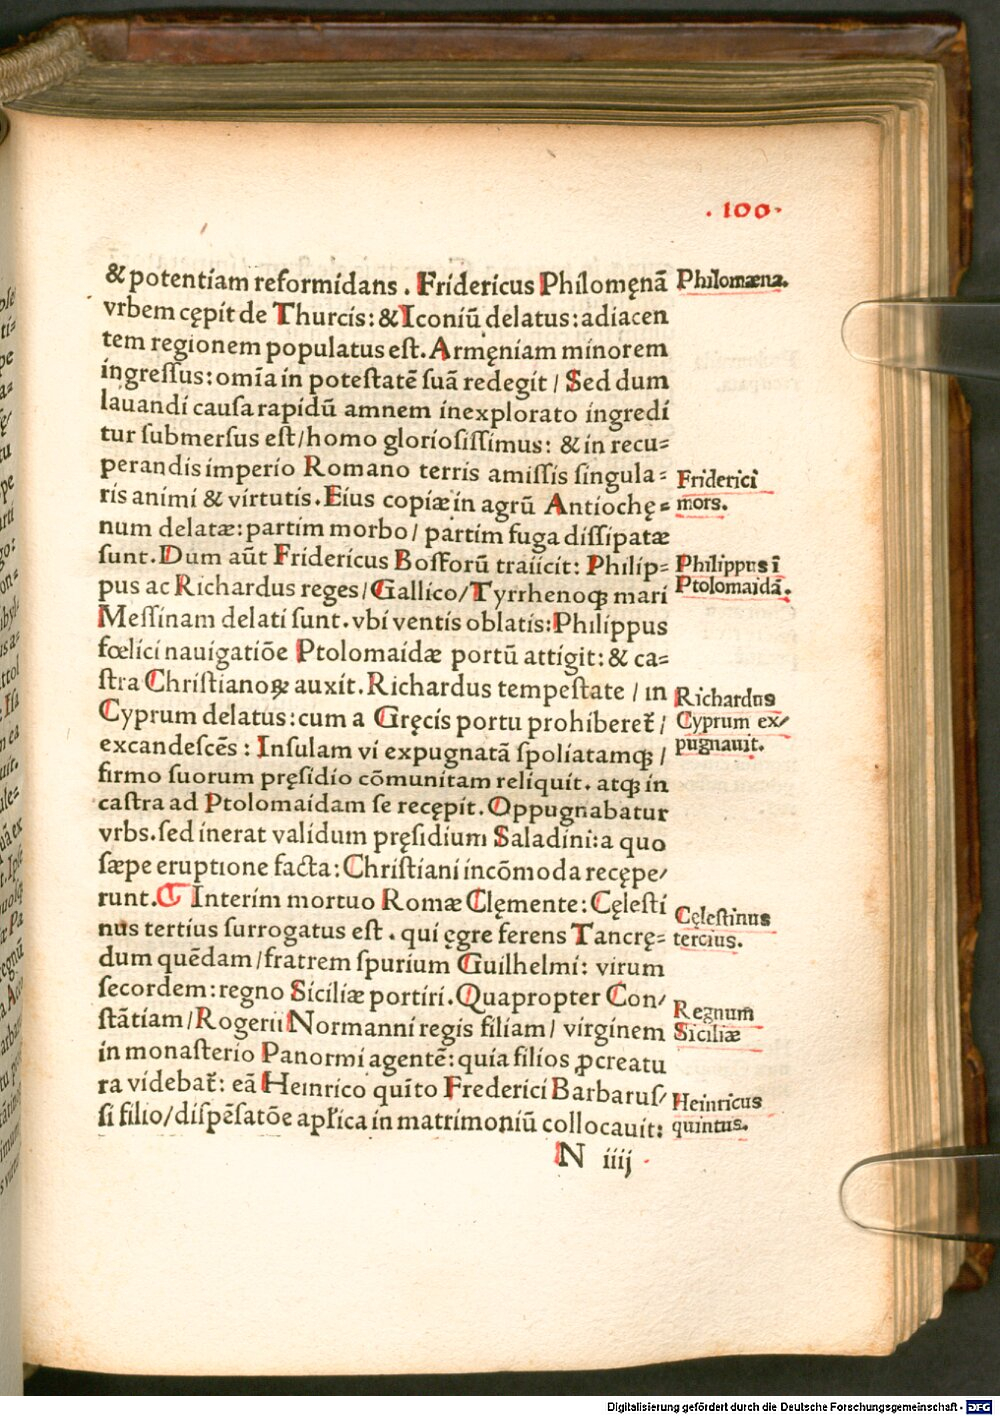 · 100 ·
& potentiam reformidans . Fridericus Philomęnā
vrbem cępit de Thurcis: & Iconiū delatus: adiacen
tem regionem populatus est. Armęniam minorem
ingressus: omīa in potestatē suā redegit / Sed dum
lauandi causa rapidū amnem inexplorato ingredi
tur submersus est/ homo gloriosissimus: & in recu⸗
perandis imperio Romano terris amissis singula⸗
ris animi & virtutis. Eius copiæ in agrū Antiochę⸗
num delatæ: partim morbo / partim fuga dissipatæ
sunt. Dum aūt Fridericus Bosforū traiicit: Philip⸗
pus ac Richardus reges/ Gallico/ Tyrrhenoqꝫ mari
Messinam delati sunt. vbi ventis oblatis: Philippus
fœlici nauigatiōe Ptolomaidæ portū attigit: & ca⸗
stra Christianoꝝ auxit. Richardus tempestate / in
Cyprum delatus: cum a Gręcis portu prohiberet̄ /
excandescēs : Insulam vi expugnatā spoliatamqꝫ /
firmo suorum pręsidio cōmunitam reliquit. atqꝫ in
castra ad Ptolomaidam se recępit. Oppugnabatur
vrbs. sed inerat validum pręsidium Saladini: a quo
sæpe eruptione facta: Christiani incōmoda recępe/
runt. ¶ Interim mortuo Romæ Clęmente: Cęlesti
nus tertius surrogatus est . qui ęgre ferens Tancrę⸗
dum quēdam/ fratrem spurium Guilhelmi: virum
secordem: regno Siciliæ portiri. Quapropter Con/
stātiam/ Rogerii Normanni regis filiam/ virginem
in monasterio Panormi agentē: quia filios ꝓcreatu
ra videbat̄: eā Heinrico quīto Frederici Barbarus/
si filio/ dispēsatōe apl̄ica in matrimoniū collocauit:
N iiij
Philomæna.
Friderici
mors.
Philippus ī
Ptolomaidā.
Richardus
Cyprum ex/
pugnauit.
Cęlestinus
tercius.
Regnum̄
Siciliæ
Heinricus
quintus.
Digitalisierung gefördert durch die Deutsche Forschungsgemeinschaft - DFG